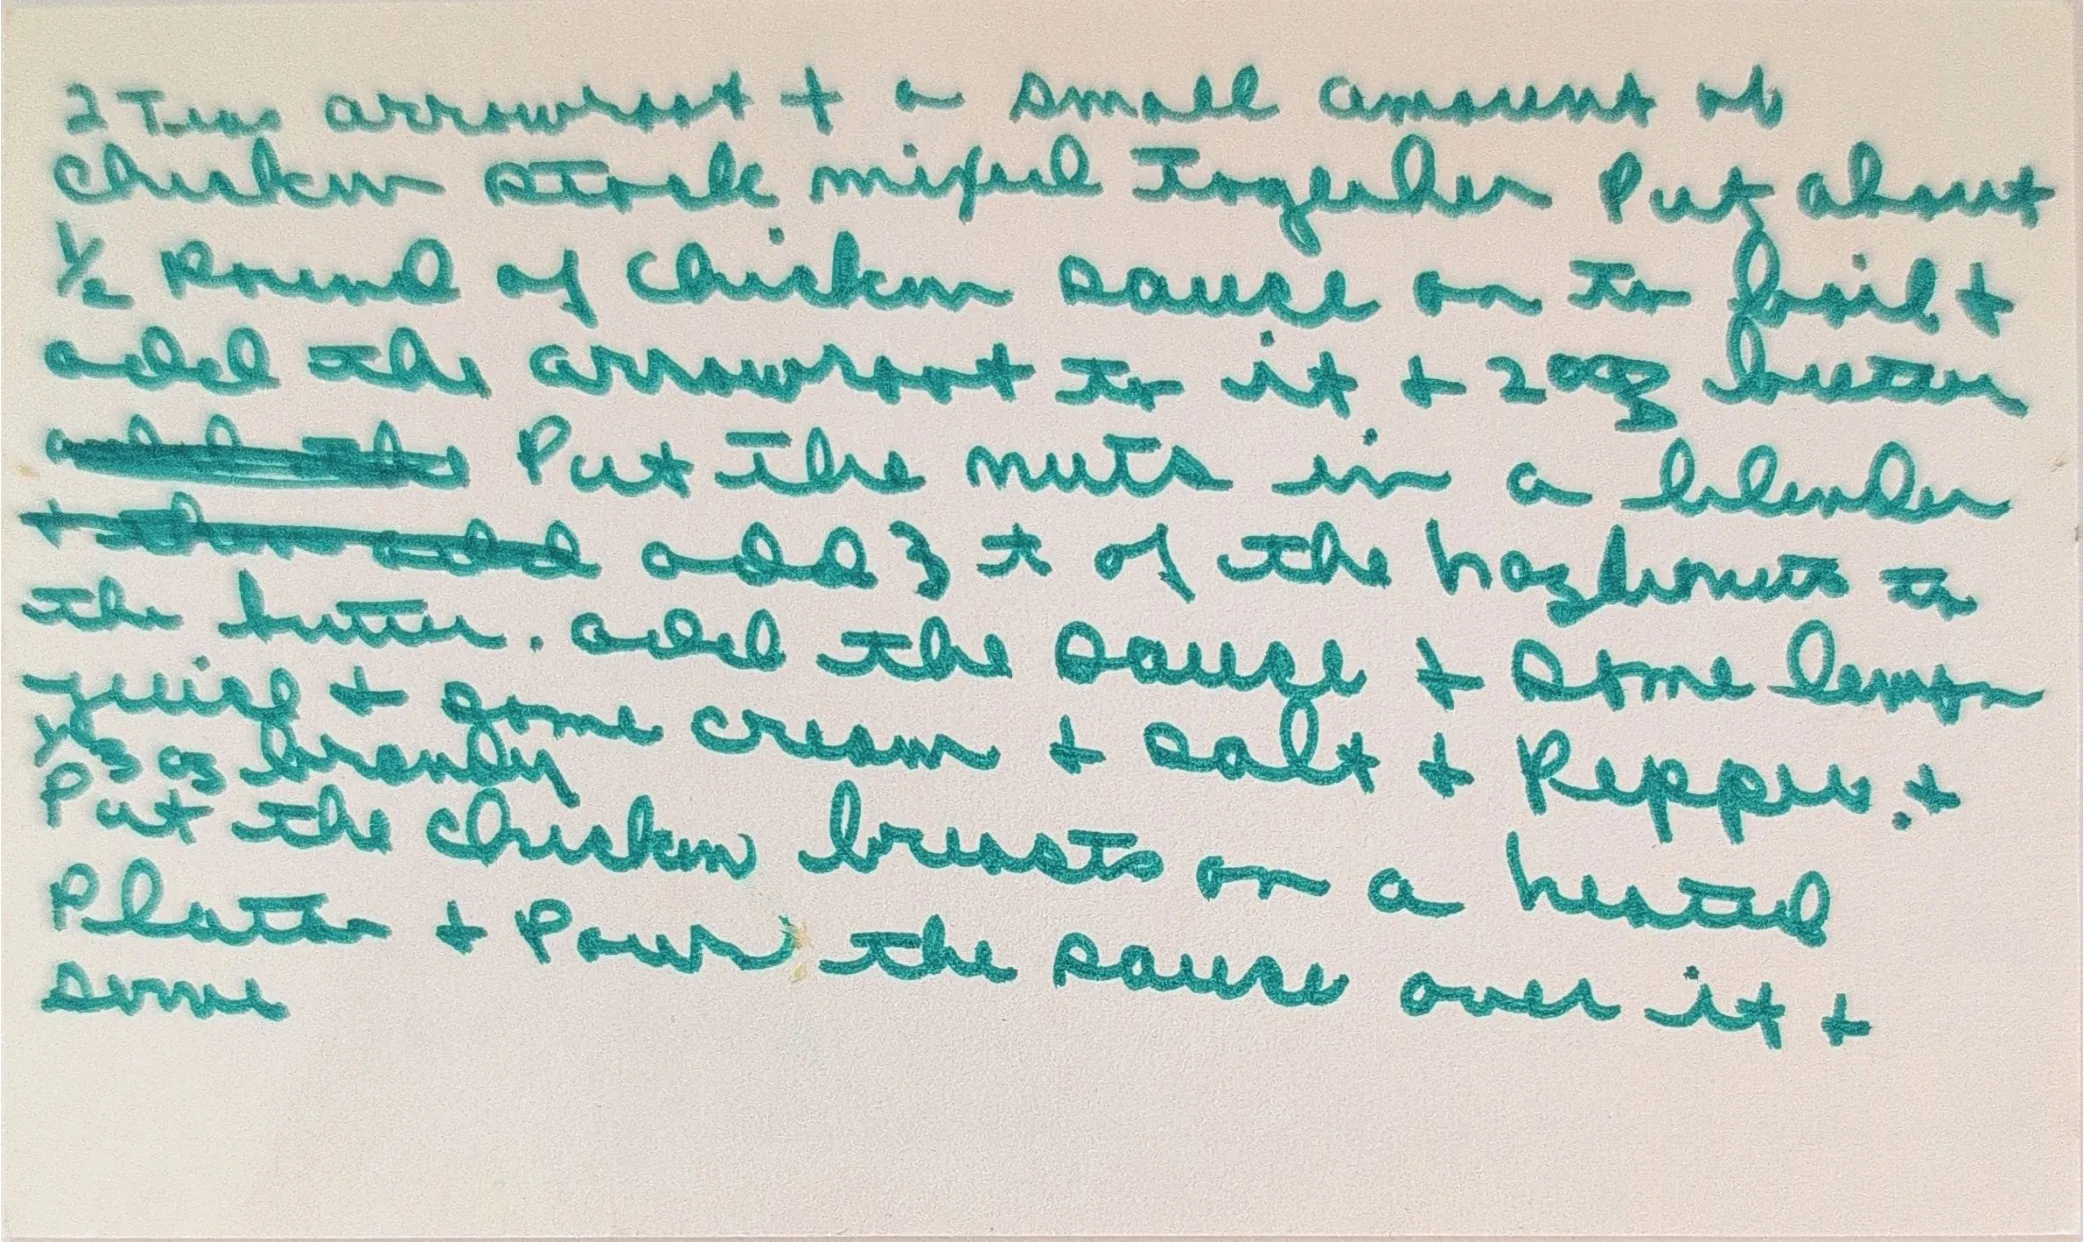 2 Teas arrowroot + a small amount of
chicken stock mixed together Put about
1/2 Pound of chicken sauce on to boil +
add the arrowroot to it + 2 oz butter
Put the nuts in a blender
add 3 t of the hazlenuts to
the butter. add the sauce + some lemon
juice + some cream + salt + Pepper. +
1/3 oz brandy
Put the chicken breasts on a heated
Platter + Pour the sauce over it +